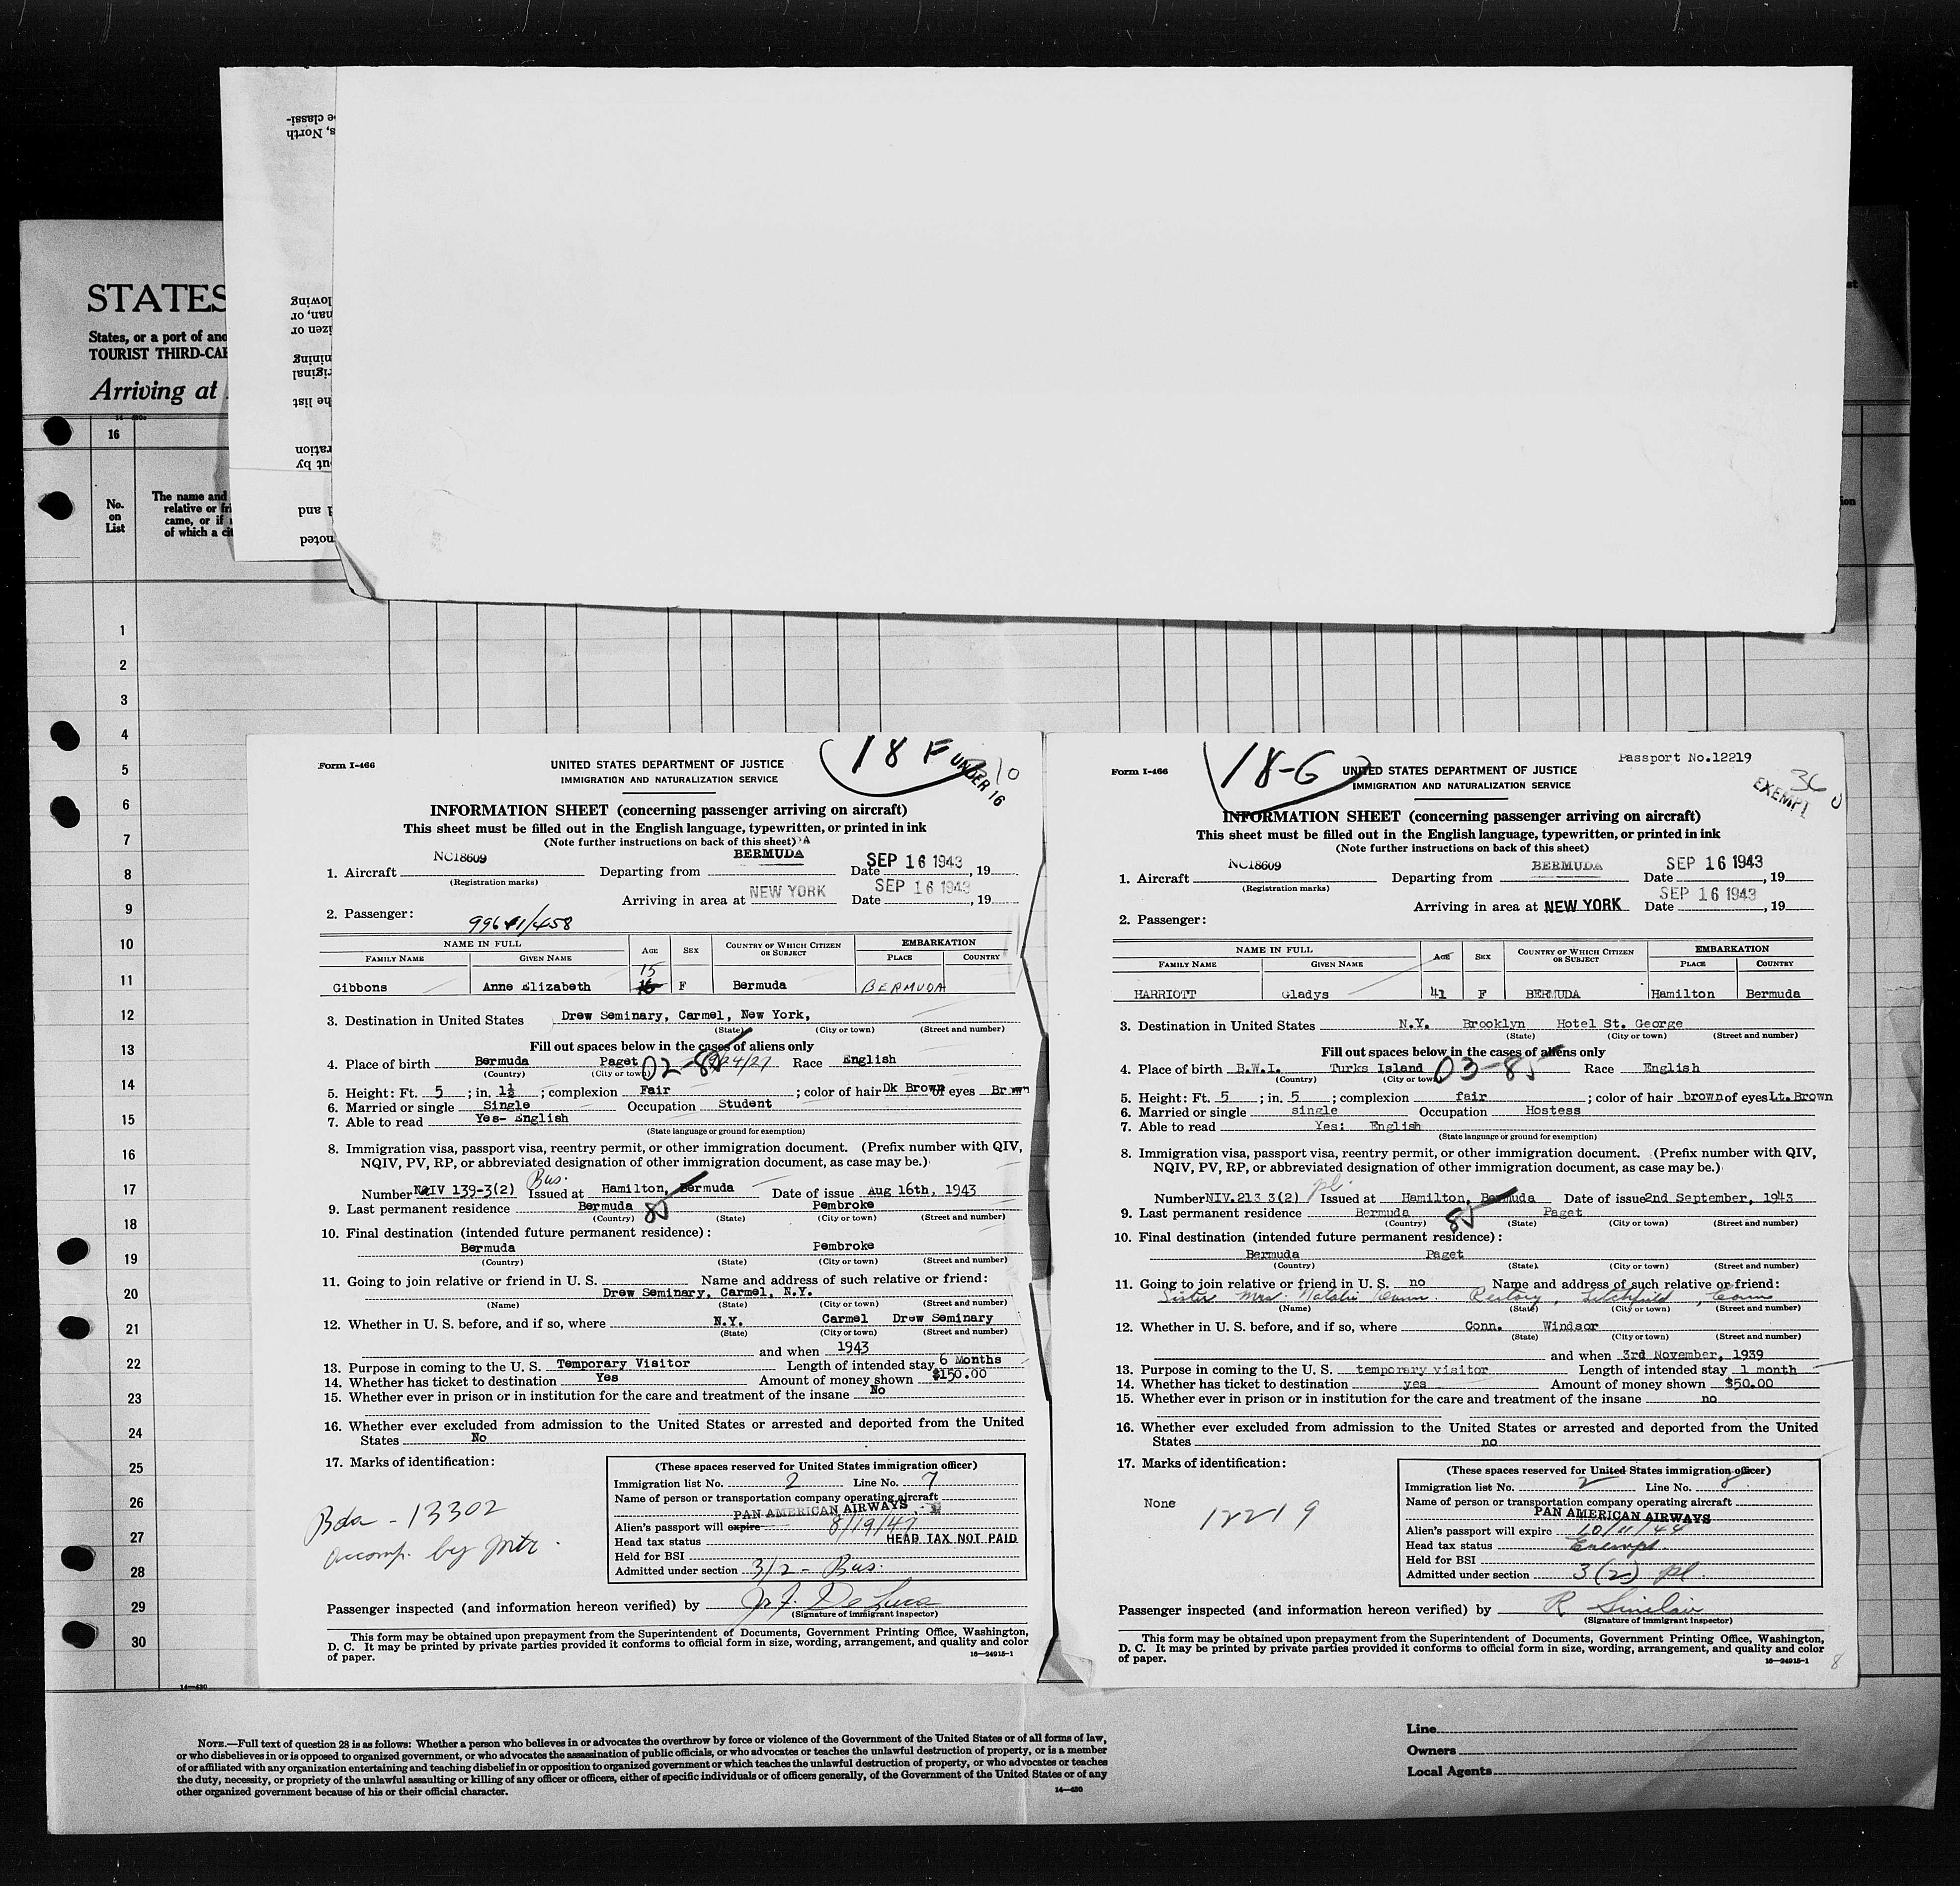 STATES
States, or a port of
TOURIST THIRD-
Arriving at
16
No.
on
List
The name and
relative or
came, or if
of which a
1
2
3
4
5
6
7
8
9
10
11
12
13
14
15
16
17
18
19
20
21
22
23
24
25
26
27
28
29
30
Form I-466
18 F
UNITED STATES DEPARTMENT OF JUSTICE
IMMIGRATION AND NATURALIZATION SERVICE
UNDER 16
INFORMATION SHEET (concerning passenger arriving on aircraft)
This sheet must be filled out in the English language, typewritten, or printed in ink
(Note further instructions on back of this sheet)
1. Aircraft NC18609 Departing from BERMUDA Date SEP 16 1943, 19
(Registration marks)
Arriving in area at NEW YORK Date SEP 16 1943, 19
2. Passenger:
NAME IN FULL AGE SEX COUNTRY OF WHICH CITIZEN OR SUBJECT EMBARKATION
FAMILY NAME GIVEN NAME PLACE COUNTRY
15
Gibbons Anne Elizabeth 16 F Bermuda BERMUDA
3. Destination in United States Drew Seminary, Carmel, New York,
(State) (City or town) (Street and number)
Fill out spaces below in the cases of aliens only
4. Place of birth Bermuda Paget 02-85 9/24/27 Race English
(Country) (City or town)
5. Height: Ft. 5; in. 1½; complexion Fair; color of hair Dk Brown of eyes Brown
6. Married or single Single Occupation Student
7. Able to read Yes- English
(State language or ground for exemption)
8. Immigration visa, passport visa, reentry permit, or other immigration document. (Prefix number with QIV,
NQIV, PV, RP, or abbreviated designation of other immigration document, as case may be.)
Bus.
Number NQIV 139-3(2) Issued at Hamilton, Bermuda Date of issue Aug 16th, 1943
9. Last permanent residence Bermuda 85 Pembroke
(Country) (State) (City or town) (Street and number)
10. Final destination (intended future permanent residence):
Bermuda Pembroke
(Country) (State) (City or town) (Street and number)
11. Going to join relative or friend in U. S. Name and address of such relative or friend:
Drew Seminary, Carmel, N.Y.
(Name) (State) (City or town) (Street and number)
12. Whether in U. S. before, and if so, where N.Y. Carmel Drew Seminary
(State) (City or town) (Street and number)
and when 1943
13. Purpose in coming to the U. S. Temporary Visitor Length of intended stay 6 Months
14. Whether has ticket to destination Yes Amount of money shown $150.00
15. Whether ever in prison or in institution for the care and treatment of the insane No
16. Whether ever excluded from admission to the United States or arrested and deported from the United
States No
17. Marks of identification:
Bda - 13302
accomp. by mtr.
(These spaces reserved for United States immigration officer)
Immigration list No. 2 Line No. 7
Name of person or transportation company operating aircraft
PAN AMERICAN AIRWAYS
Alien's passport will expire 8/19/47
Head tax status HEAD TAX NOT PAID
Held for BSI
Admitted under section 3/2 - Bus.
Passenger inspected (and information hereon verified) by
(Signature of immigrant inspector)
This form may be obtained upon prepayment from the Superintendent of Documents, Government Printing Office, Washington,
D. C. It may be printed by private parties provided it conforms to official form in size, wording, arrangement, and quality and color
of paper.
16-24915-1
Passport No.12219
Form I-466
18-G
UNITED STATES DEPARTMENT OF JUSTICE
IMMIGRATION AND NATURALIZATION SERVICE
36
EXEMPT
INFORMATION SHEET (concerning passenger arriving on aircraft)
This sheet must be filled out in the English language, typewritten, or printed in ink
(Note further instructions on back of this sheet)
1. Aircraft NC18609 Departing from BERMUDA Date SEP 16 1943, 19
(Registration marks)
Arriving in area at NEW YORK Date SEP 16 1943, 19
2. Passenger:
NAME IN FULL AGE SEX COUNTRY OF WHICH CITIZEN OR SUBJECT EMBARKATION
FAMILY NAME GIVEN NAME PLACE COUNTRY
HARRIOTT Gladys 41 F BERMUDA Hamilton Bermuda
3. Destination in United States N.Y. Brooklyn Hotel St. George
(State) (City or town) (Street and number)
Fill out spaces below in the cases of aliens only
4. Place of birth B.W.I. Turks Island 03-85 Race English
(Country) (City or town)
5. Height: Ft. 5; in. 5; complexion fair; color of hair brown of eyes Lt. Brown
6. Married or single single Occupation Hostess
7. Able to read Yes: English
(State language or ground for exemption)
8. Immigration visa, passport visa, reentry permit, or other immigration document. (Prefix number with QIV,
NQIV, PV, RP, or abbreviated designation of other immigration document, as case may be.)
pl.
Number NIV.213 3(2) Issued at Hamilton, Bermuda Date of issue 2nd September, 1943
9. Last permanent residence Bermuda 85 Paget
(Country) (State) (City or town) (Street and number)
10. Final destination (intended future permanent residence):
Bermuda Paget
(Country) (State) (City or town) (Street and number)
11. Going to join relative or friend in U. S. no Name and address of such relative or friend:
Sister Mrs. Natalie Rectory, Litchfield, Conn
(Name) (State) (City or town) (Street and number)
12. Whether in U. S. before, and if so, where Conn. Windsor
(State) (City or town) (Street and number)
and when 3rd November, 1939
13. Purpose in coming to the U. S. temporary visitor Length of intended stay 1 month
14. Whether has ticket to destination yes Amount of money shown $50.00
15. Whether ever in prison or in institution for the care and treatment of the insane no
16. Whether ever excluded from admission to the United States or arrested and deported from the United
States no
17. Marks of identification:
None 12219
(These spaces reserved for United States immigration officer)
Immigration list No. 2 Line No. 8
Name of person or transportation company operating aircraft
PAN AMERICAN AIRWAYS
Alien's passport will expire 10/11/44
Head tax status Exempt.
Held for BSI
Admitted under section 3(2) pl.
Passenger inspected (and information hereon verified) by R Sinclair
(Signature of immigrant inspector)
This form may be obtained upon prepayment from the Superintendent of Documents, Government Printing Office, Washington,
D. C. It may be printed by private parties provided it conforms to official form in size, wording, arrangement, and quality and color
of paper.
16-24915-1
8
14-430
NOTE.—Full text of question 28 is as follows: Whether a person who believes in or advocates the overthrow by force or violence of the Government of the United States or of all forms of law,
or who disbelieves in or is opposed to organized government, or who advocates the assassination of public officials, or who advocates or teaches the unlawful destruction of property, or is a member
of or affiliated with any organization entertaining and teaching disbelief in or opposition to organized government or which teaches the unlawful destruction of property, or who advocates or teaches
the duty, necessity, or propriety of the unlawful assaulting or killing of any officer or officers, either of specific individuals or of officers generally, of the Government of the United States or of any
other organized government because of his or their official character.
14-430
Line
Owners
Local Agents